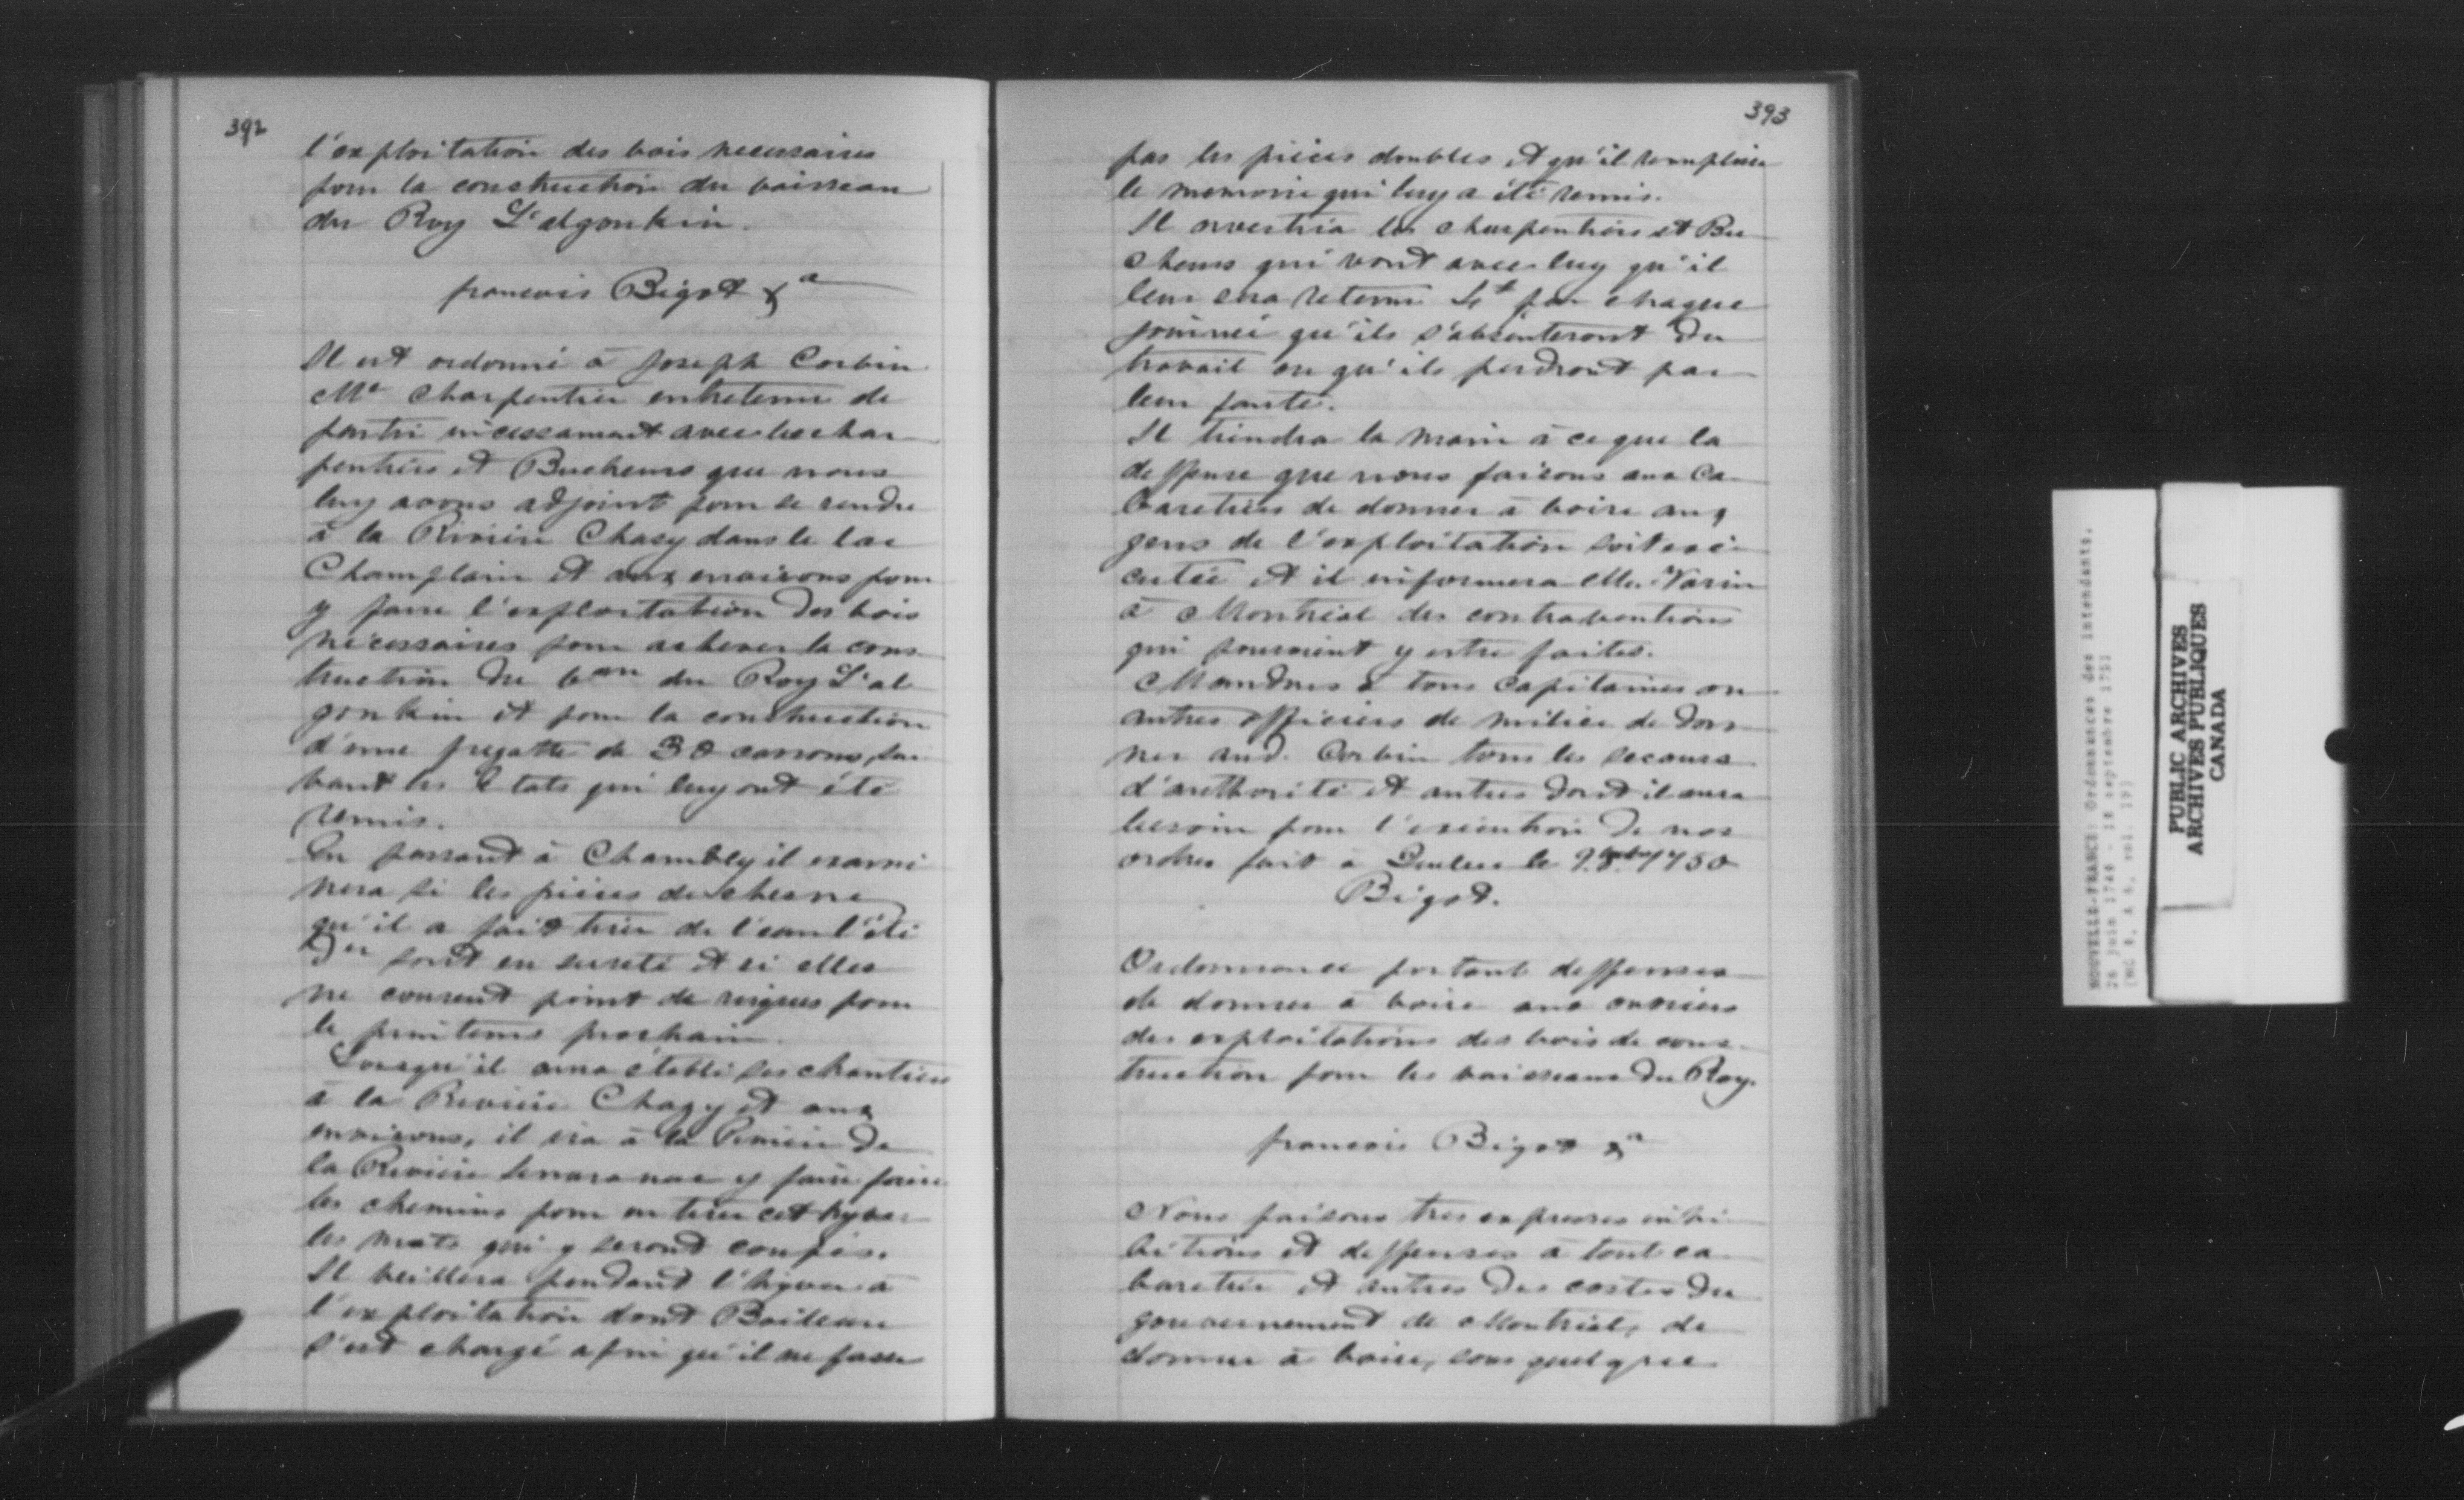 392
l'exploitation des bois necessaires
pour la construction du vaisseau
du Roy L'algonkin.
francois Bigot &a
Il est ordonné à Joseph Corbin
Me Charpentier entretenu de
partir incessament avec les char
pentiers et Bucheurs que nous
luy avons adjoint pour se rendre
à la Riviere Chasy dans le lac
Champlain et aux environs pour
y faire l'exploitation des bois
nécessaires pour achever la cons
truction du vau du Roy L'al
gonkin et pour la construction
d'une fregatte de 30 canons, sui
vant les Etats qui luy ont été
remis.
En passant à Chambly il exami
nera si les pièces de chesne
qu'il a fait tirer de l'eau l'été
der sont en sureté et si elles
ne courent point de risques pour
le printems prochain.
Lorsqu'il aura établi ses chantiers
à la Riviere Chazy et aux
environs, il ira à la Pinière de
la Riviere y faire faire
les chemins pour en tirer cet hyver
les mats qui y seront coupés.
Il veillera pendant l'hyver à
l'exploitation dont Boileau
s'est chargé afin qu'il ne fasse
393
pas les pièces doubles et qu'il remplisse
le memoire qui luy a été remis.
Il avertira les charpentiers et Bu
cheurs qui vont avec luy qu'il
leur sera retenu 4# par chaque
journée qu'ils s'absenteront du
travail ou qu'ils perdront par
leur faute.
Il tiendra la main à ce que la
deffense que nous faisons aux Ca
baretiers de donner à boire aux
gens de l'exploitation soit exé
cutée et il informera Mr Varin
à Montréal des contraventions
qui pourroient y estre faites.
Mandons à tous Capitaines ou
autres officiers de milice de don
ner aud. Corbin tous les secours
d'authorité et autres dont il aura
besoin pour l'exécution de nos
ordres fait à Quebec le 1750
Bigot.
Ordonnance portant deffenses
de donner à boire aux ouvriers
des exploitations des bois de cons
truction pour les vaisseaux du Roy.
francois Bigot &a
Nous faisons tres expresses inhi
bitions et deffenses à tout ca
baretier et autres des costes du
gouvernement de Montréal, de
donner à boire, sous quelque
NOUVELLE-FRANCE: Ordonnances des intendants.
26 juin 1748 - 18 septembre 1752
PUBLIC ARCHIVES
ARCHIVES PUBLIQUES
CANADA